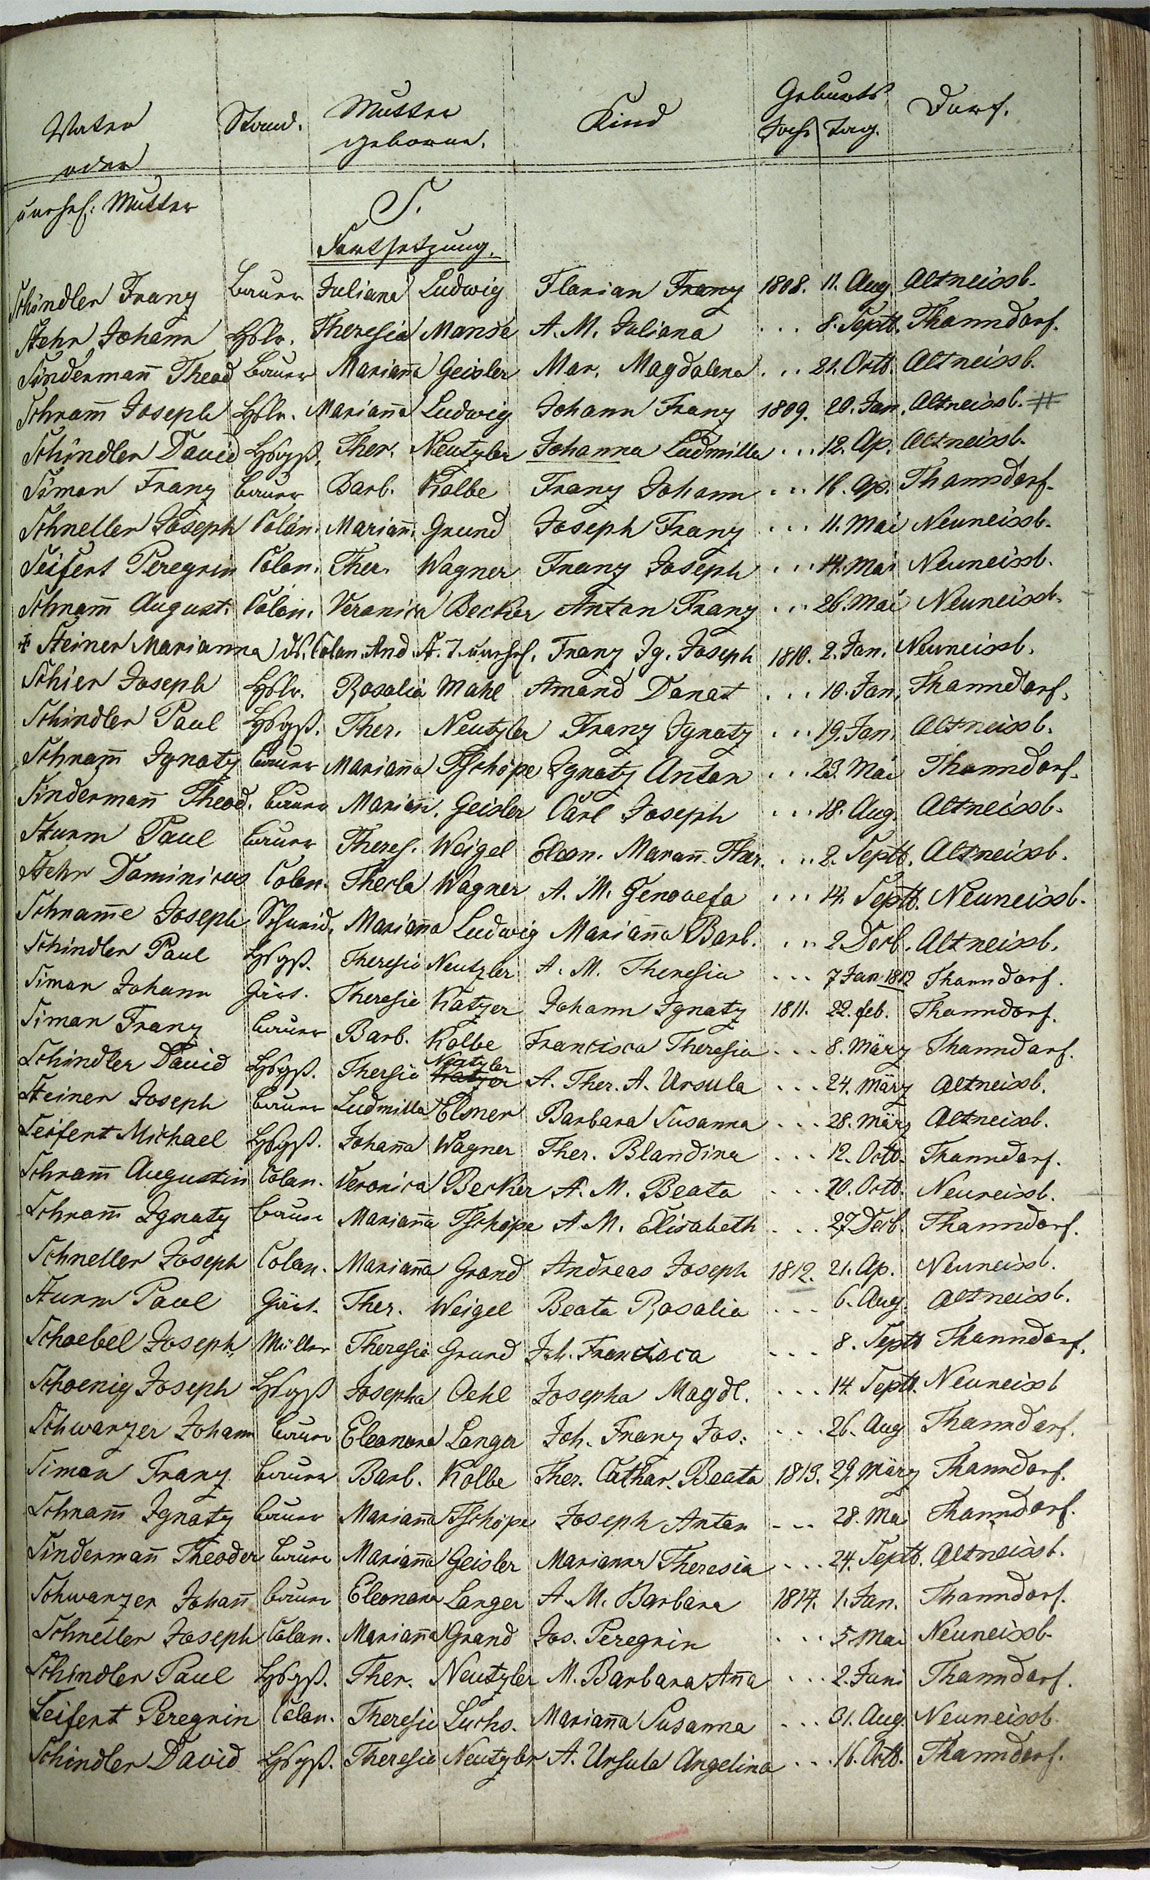 Vater oder unehel: Mutter Stand. Mutter geborne. Kind Geburts Jahr Tag. Dorf.
S.
Fortsetzung.
Schindler Franz Bauer Juliana Ludwig Florian Franz 1808. 11. Aug Altneissb.
Stehr Johann Hslr. Theresia Manse A. M. Juliana ... 8. Septb. Thanndorf.
Sindermañ Theod Bauer Mariaña Geisler Mar. Magdalena ... 21. Octb. Altneissb.
Schram̄ Joseph Hslr. Mariaña Ludwig Johann Franz 1809. 20. Jan. Altneissb. #
Schindler David Hsgß. Ther. Neutzler Johanna Ludmilla ... 12. Ap. Altneissb.
Siman Franz Bauer Barb. Kolbe Franz Johann ... 16. Ap. Thanndorf.
Schneller Joseph Colon. Mariañ. Grund Joseph Franz ... 11. Mai Neuneissb.
Seifert Peregrin Colon. Ther. Wagner Franz Joseph ... 14. Mai Neuneissb.
Schram̄ August. Colon. Veronica Becker Anton Franz ... 26. Mai Neuneissb.
Steiner Marianna ds. Colon And St. T. unehel. Franz Ig. Joseph 1810. 2. Jan. Neuneissb.
Schier Joseph Hslr. Rosalia Mahl Amand Donat ... 10. Jan. Thanndorf.
Schindler Paul Hsgß. Ther. Neutzler Franz Ignatz ... 19. Jan. Altneissb.
Schram̄ Ignatz Bauer Mariaña Tschöpe Ignatz Anton ... 23. Mai Thanndorf.
Sindermañ Theod. Bauer Mariañ. Geisler Carl Joseph ... 18. Aug. Altneissb.
Sturm Paul Bauer Theres. Weigel Eleon. Marañ. Ther. ... 2. Septb. Altneissb.
Stehr Dominicus Colon. Thecla Wagner A. M. Genovefa ... 14. Septb. Neuneissb.
Schram̄e Joseph Schmid. Mariaña Ludwig Mariaña Barb. ... 2 Decb. Altneissb.
Schindler Paul Hsgß. Theresia Neutzler A. M. Theresia ... 7 Jan 1812 Thanndorf.
Siman Johann Gärt. Theresie Katzer Johann Ignatz 1811. 22. feb. Thanndorf.
Siman Franz Bauer Barb. Kolbe Francisca Theresia ... 8. März Thanndorf.
Schindler David Hsgß. Thersie Katzer Neutzler A. Ther. A. Ursula ... 24. März Altneissb.
Steiner Joseph Bauer Ludmilla Elsner Barbara Susanna ... 28. März Altneissb.
Seifert Michael Hsgß. Johaña Wagner Ther. Blandina ... 12. Octb. Thanndorf.
Schram̄ Augustin Colon. Veronica Becker A. M. Beata ... 20. Octb. Neuneissb.
Schram̄ Ignatz Bauer Mariaña Tschöpe A. M. Elisabeth ... 27 Decb. Thanndorf.
Schneller Joseph Colon. Mariaña Grond Andreas Joseph 1812. 21. Ap. Neuneissb.
Sturm Paul Gärt. Ther. Weigel Beata Rosalia ... 6. Aug. Altneissb.
Schoebel Joseph. Müller Theresia Grund Joh. Francisca ... 8. Septb Thanndorf.
Schoenig Joseph Hsgß Josepha Oehl Josepha Magdl. ... 14. Septb. Neuneissb
Schwarzer Johann Bauer Eleonora Langer Joh. Franz Jos. ... 26. Aug Thanndorf.
Siman Franz Bauer Barb. Kolbe Ther. Cathar. Beata 1813. 29. März Thanndorf.
Schram̄ Ignatz Bauer Mariaña Tschöpe Joseph Anton ... 28. Mai Thanndorf.
Sindermañ Theoder Bauer Mariaña Geisler Mariana Theresia ... 24. Septb. Altneissb.
Schwarzer Johañ Bauer Eleonora Langer A. M. Barbara 1814. 1. Jan. Thanndorf.
Schneller Joseph Colon. Mariaña Grand Jos. Peregrin ... 5. Mai Neuneissb.
Schindler Paul Hsgß. Ther. Neutzler M. Barbara Aña ... 2. Juni Thanndorf.
Seifert Peregrin Colon. Theresie Luchs. Mariaña Susanna ... 31. Aug. Neuneissb.
Schindler David Hsgß. Theresie Neutzler A. Ursula Angelina ... 16. Octb. Thanndorf.